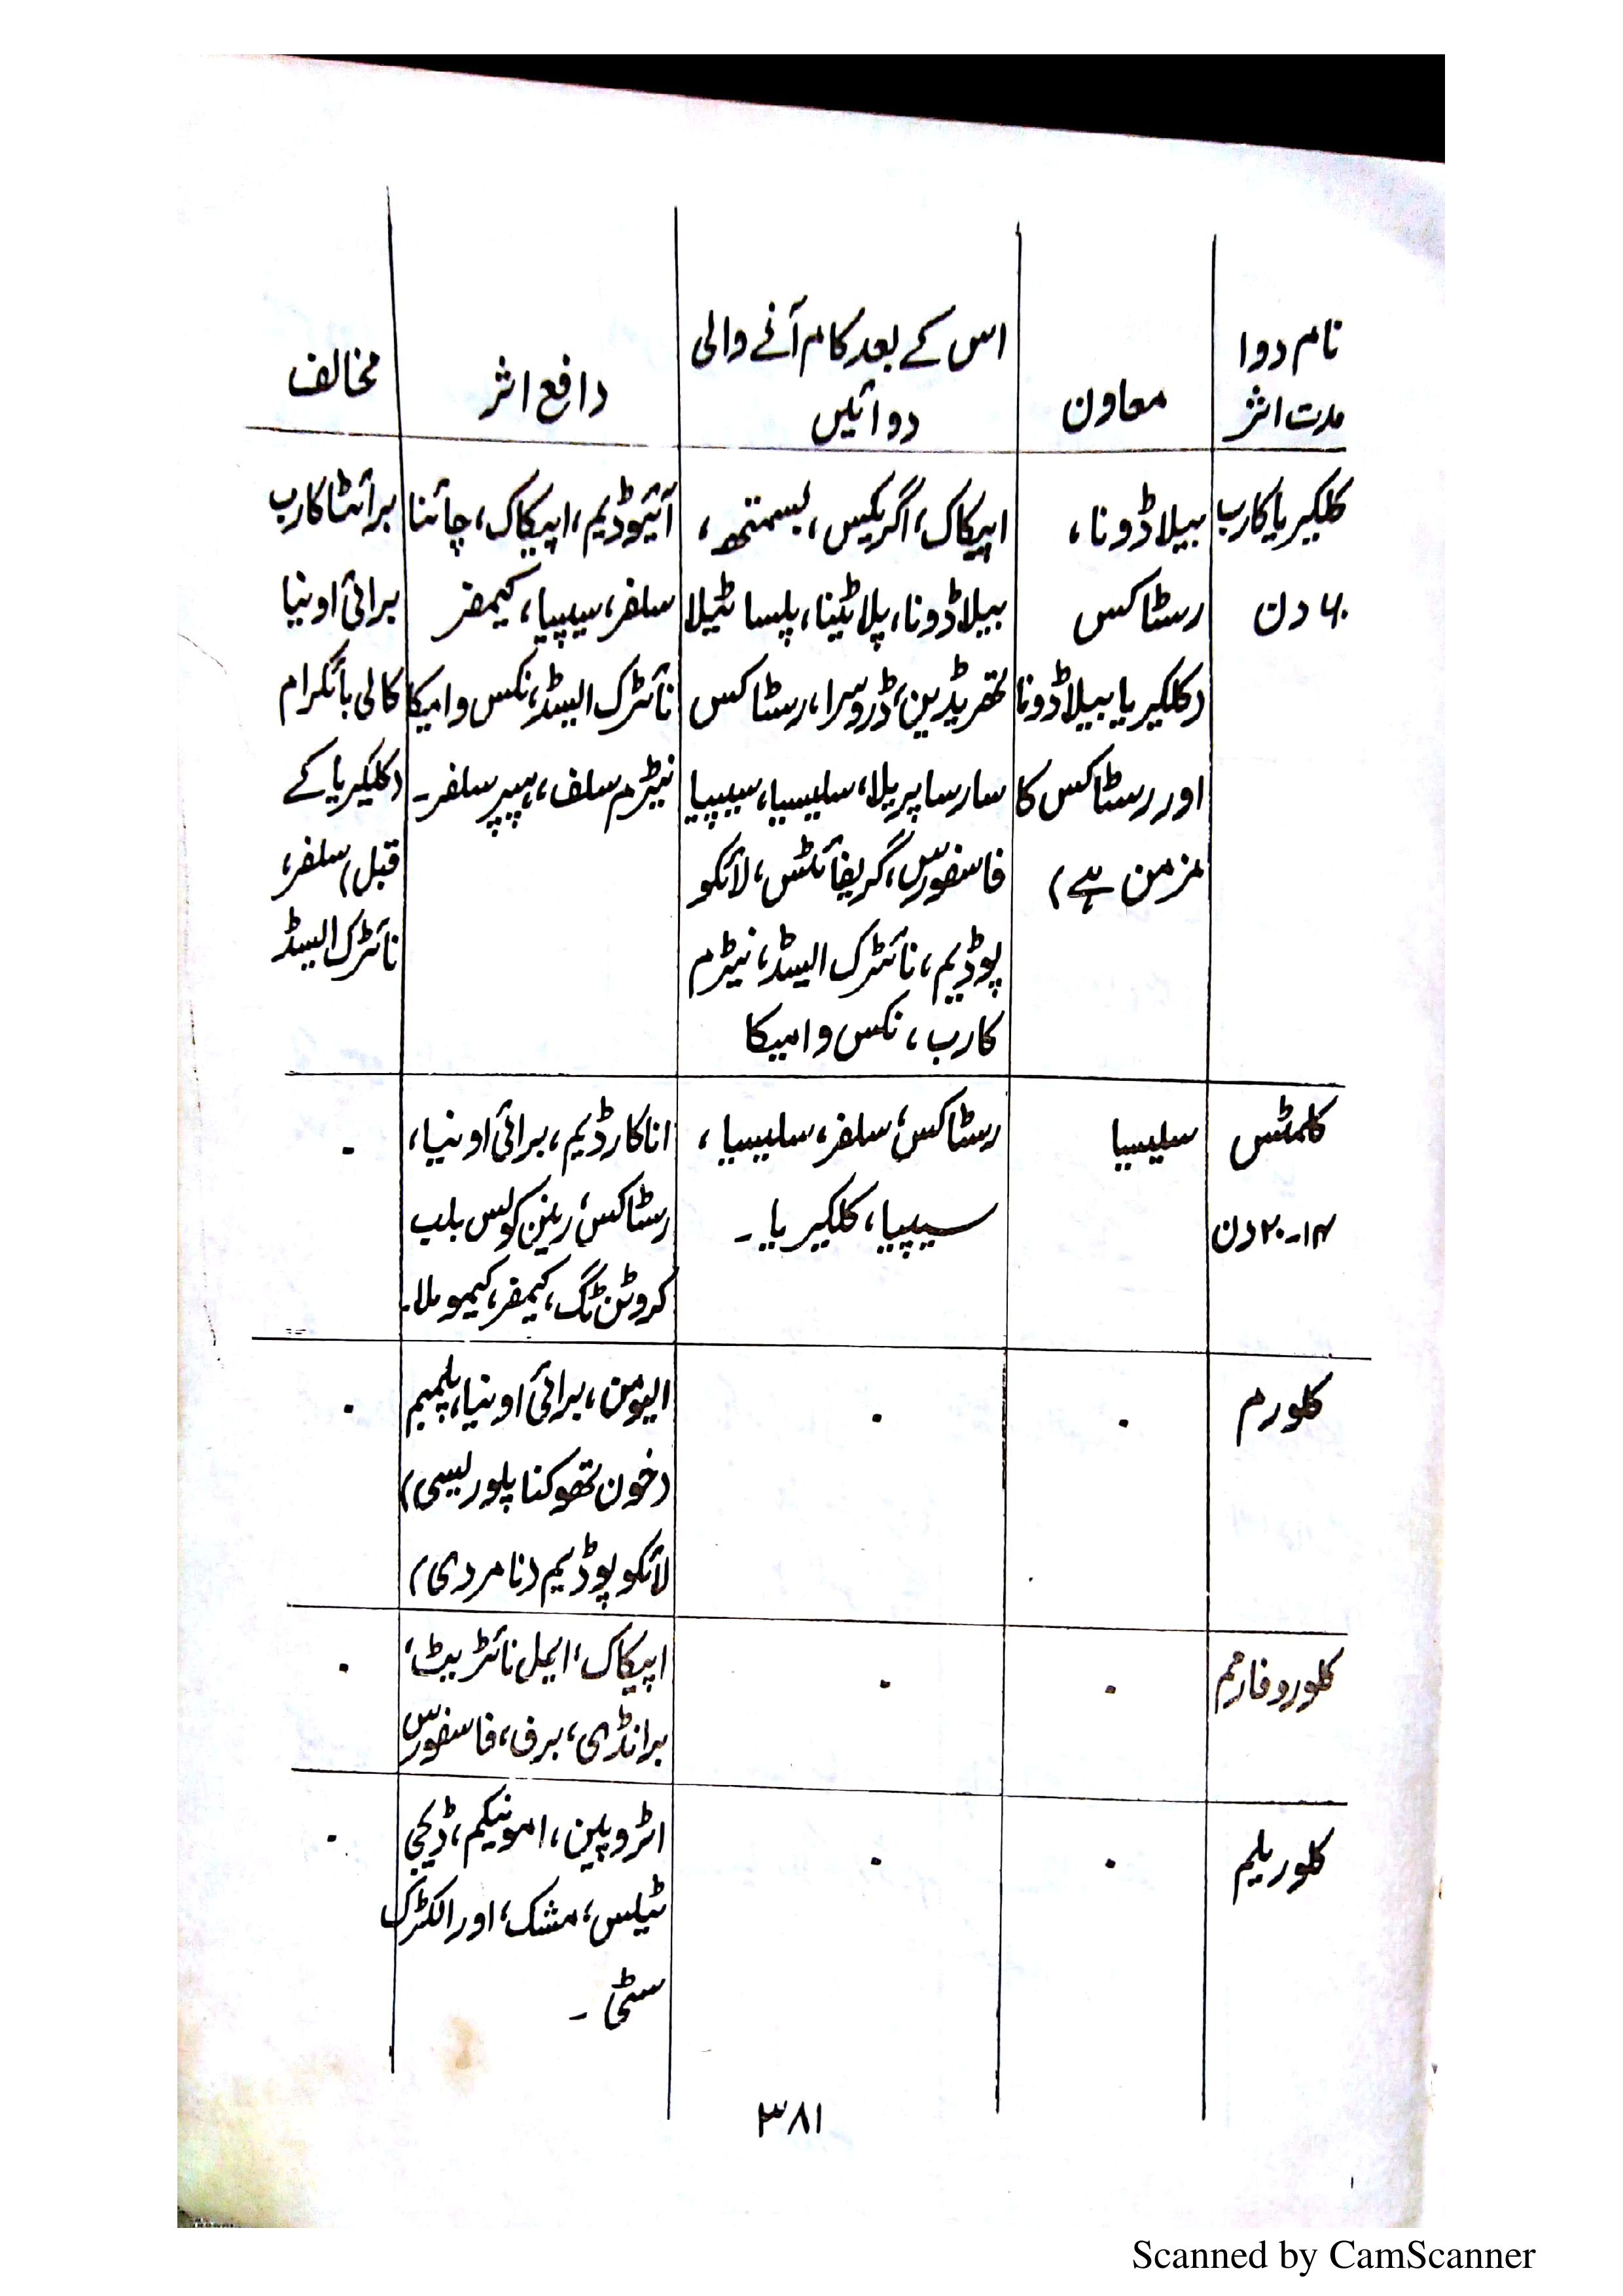 نام دوا
مدت اثر
معاون
اس کے بعد کام آنے والی
دوائیں
دافع اثر
مخالف
کلکیریا کارب
۶۰ دن
بیلاڈونا،
رسٹاکس
(کلکیریا بیلاڈونا
اور رسٹاکس کا
مزمن ہے)
اپیکاک، اگریکس، بسمتھ،
بیلاڈونا، پلاٹینا، پلساٹیلا
تھریڈین، ڈروسرا، رسٹاکس
سارساپریلا، سلیسیا، سیپیا
فاسفورس، گریفائٹس، لائکو
پوڈیم، نائٹرک ایسڈ، نیٹرم
کارب، نکس وامیکا
آئیوڈیم، اپیکاک، چائنا
سلفر، سیپیا، کیمفر
نائٹرک ایسڈ، نکس وامیکا
نیٹرم سلف، ہیپر سلفر۔
برائٹا کارب
برائی اونیا
کالی بائکرام
(کلکیریا کے
قبل) سلفر،
نائٹرک ایسڈ
کلمٹس
۱۴-۲۰ دن
سلیسیا
رسٹاکس، سلفر، سلیسیا،
سیپیا، کلکیریا۔
اناکارڈیم، برائی اونیا،
رسٹاکس، رینن کولس بلب
کروٹن ٹگ، کیمفر، کیموملا۔
-
کلورم
.
.
الیومن، برائی اونیا، پلمبم
(خون تھوکنا پلوریسی)
لائکوپوڈیم (نامردی)
.
کلوروفارمم
.
.
اپیکاک، ایمل نائٹریٹ،
برانڈی، برف، فاسفورس
.
کلوریلم
.
.
اٹروپین، امونیکم، ڈیجی
ٹیلس، مشک، اور الکٹرک
سٹی۔
.
۳۸۱
Scanned by CamScanner